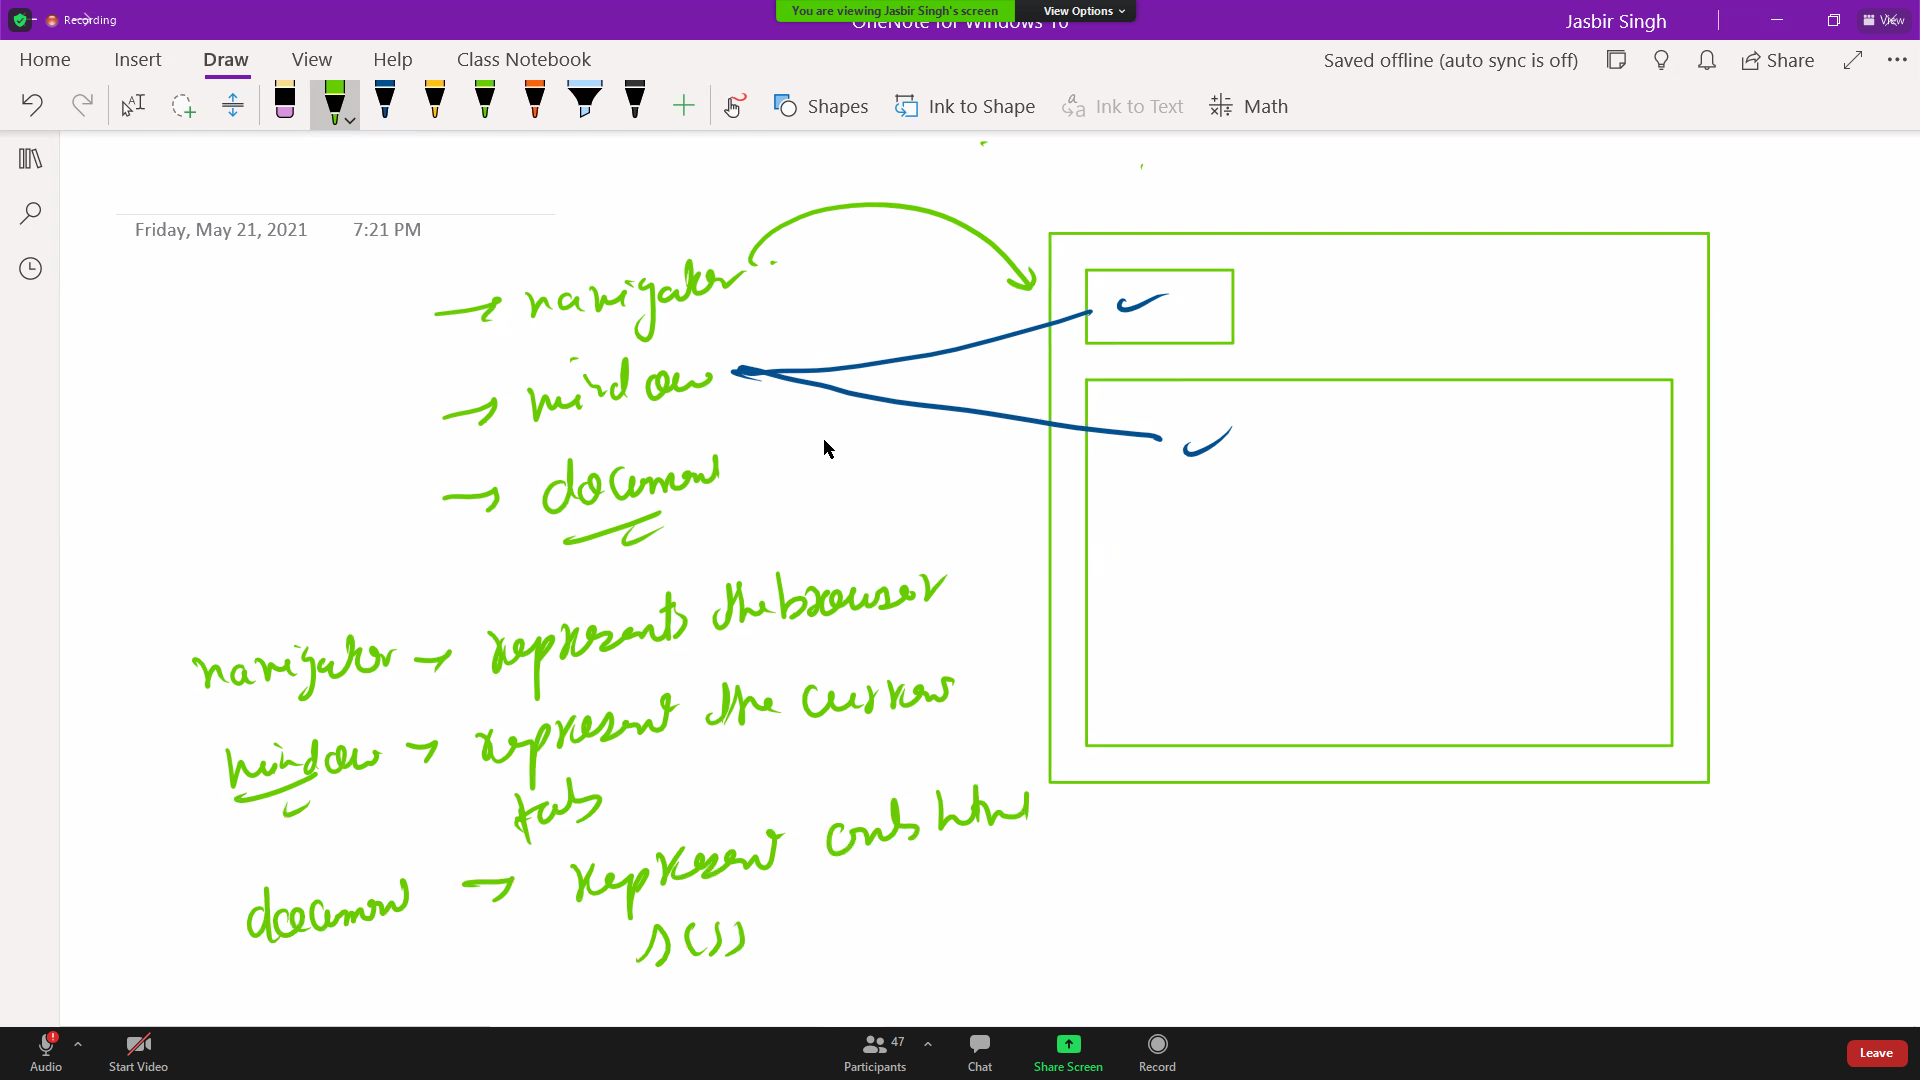 Recording
You are viewing Jasbir Singh's screen
View Options
OneNote for Windows 10
Jasbir Singh
View
Home
Insert
Draw
View
Help
Class Notebook
Saved offline (auto sync is off)
Share
Shapes
Ink to Shape
Ink to Text
Math
Friday, May 21, 2021
7:21 PM
→ navigator
→ window
→ document
navigator → represents the browser
window → represent the current
tab
document → represent only html
& css
Audio
Start Video
Participants
47
Chat
Share Screen
Record
Leave